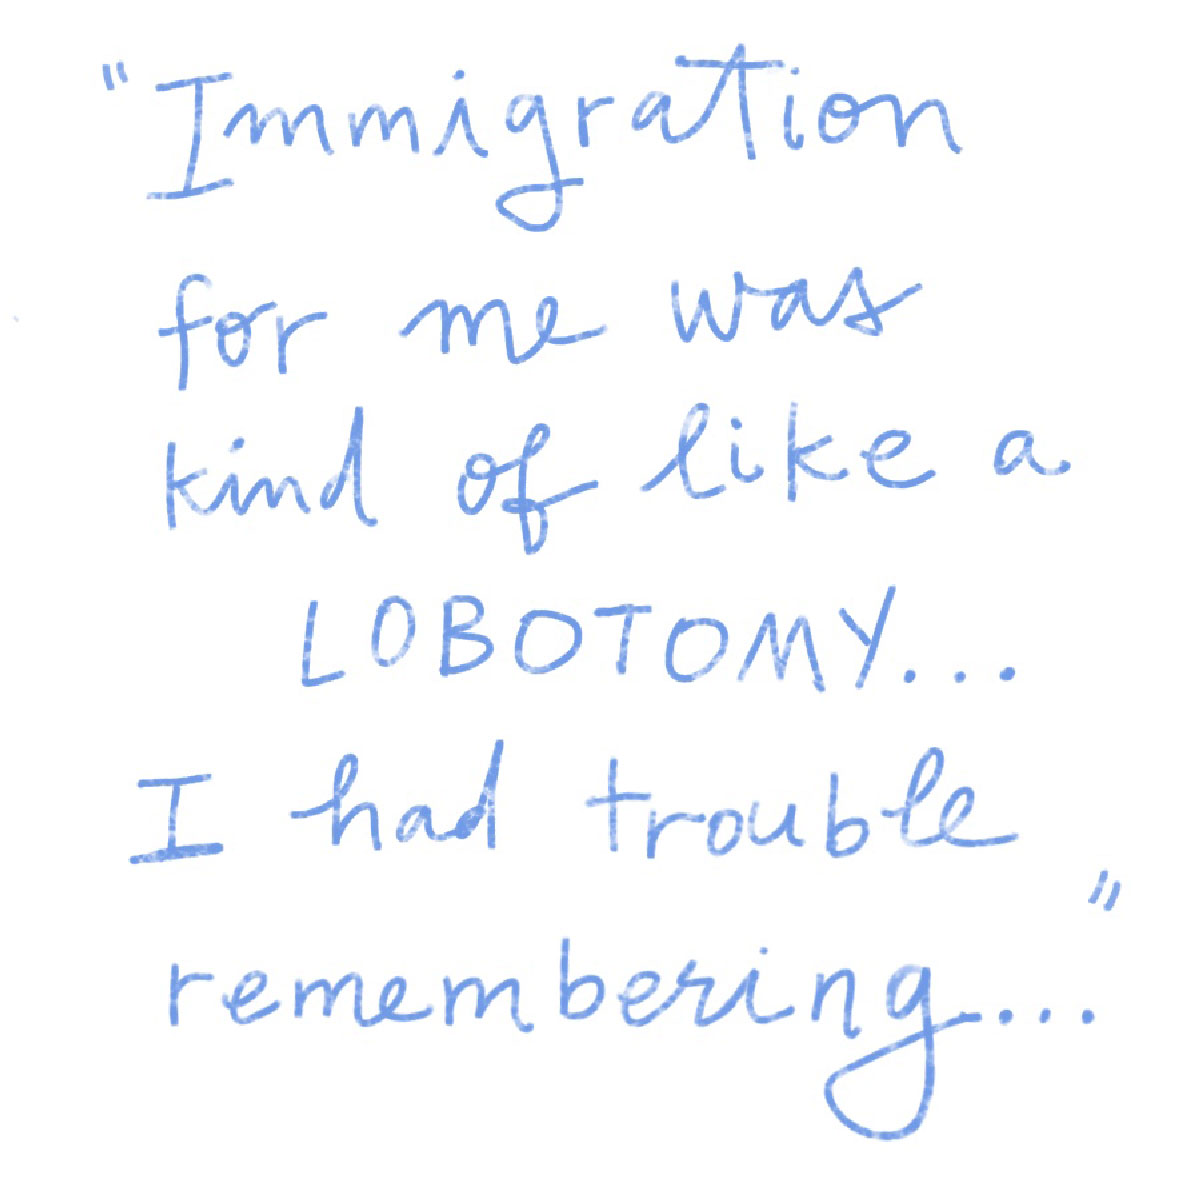 "Immigration
for me was
kind of like a
LOBOTOMY...
I had trouble
remembering...."